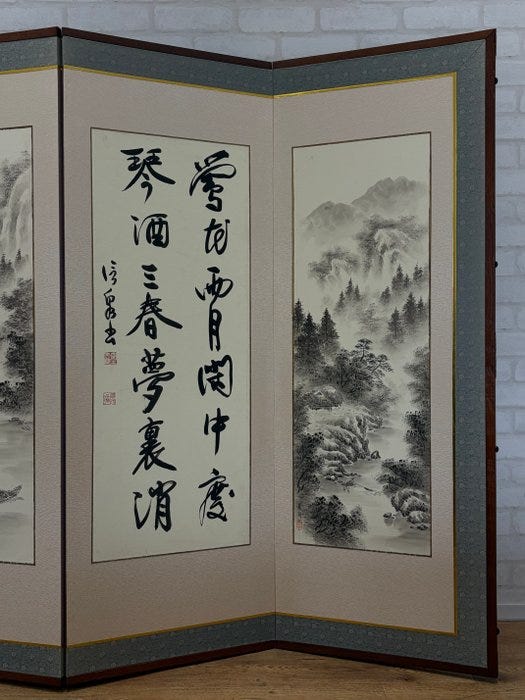 鶯花両月閑中度
琴酒三春夢裏消
信泉書